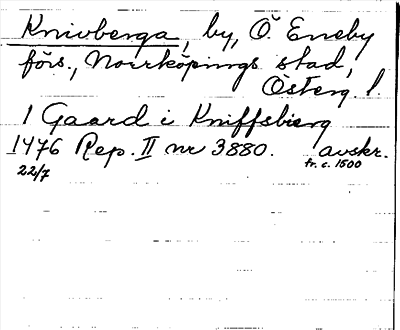 Knivberga, by, Ö. Eneby
förs., Norrköpings stad,
Österg. l.
1 Gaard i Kniffsbierg
1476 Rep. II nr 3880. avskr.
22/7 fr. c. 1500